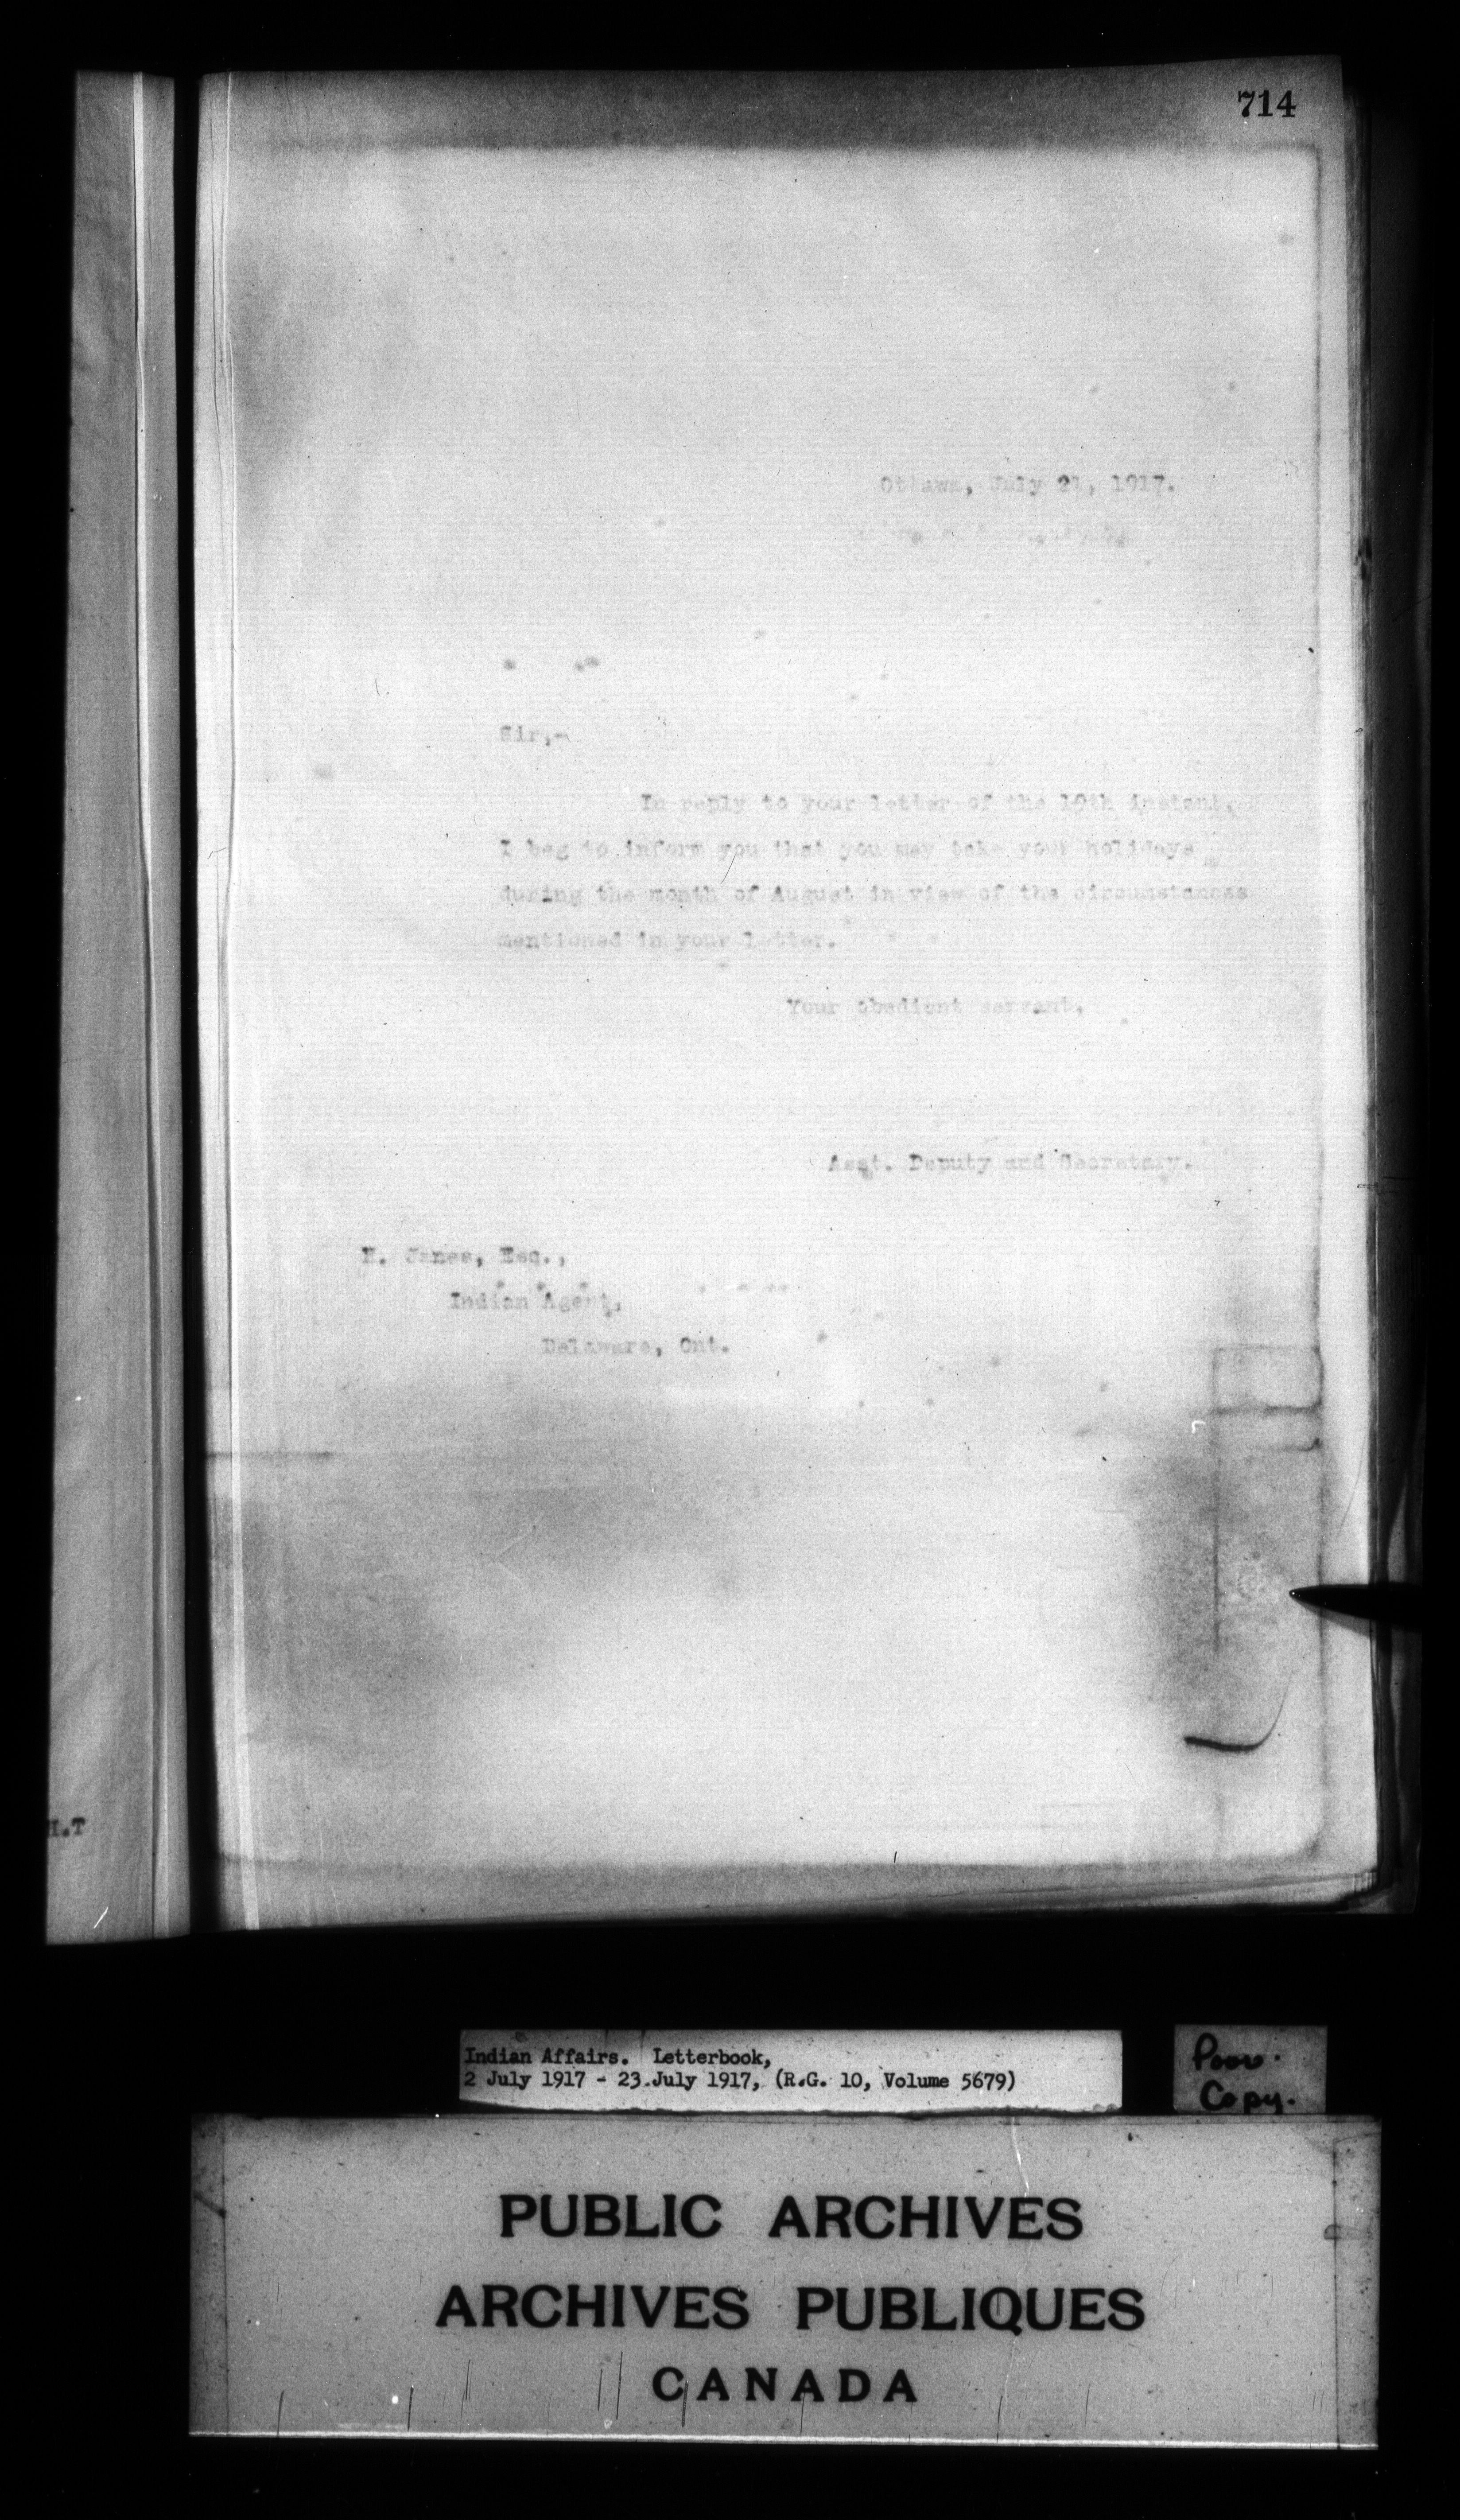 714
Ottawa, July 21, 1917.
Sir,-
In reply to your letter of the 19th instant,
I beg to inform you that you may take your holidays
during the month of August in view of the circumstances
mentioned in your letter.
Your obedient servant,
Asst. Deputy and Secretary.
Janes, Esq.,
Indian Agent,
Delaware, Ont.
I.T
Indian Affairs. Letterbook,
2 July 1917 - 23 July 1917, (R.G. 10, Volume 5679)
Poor
Copy.
PUBLIC ARCHIVES
ARCHIVES PUBLIQUES
CANADA